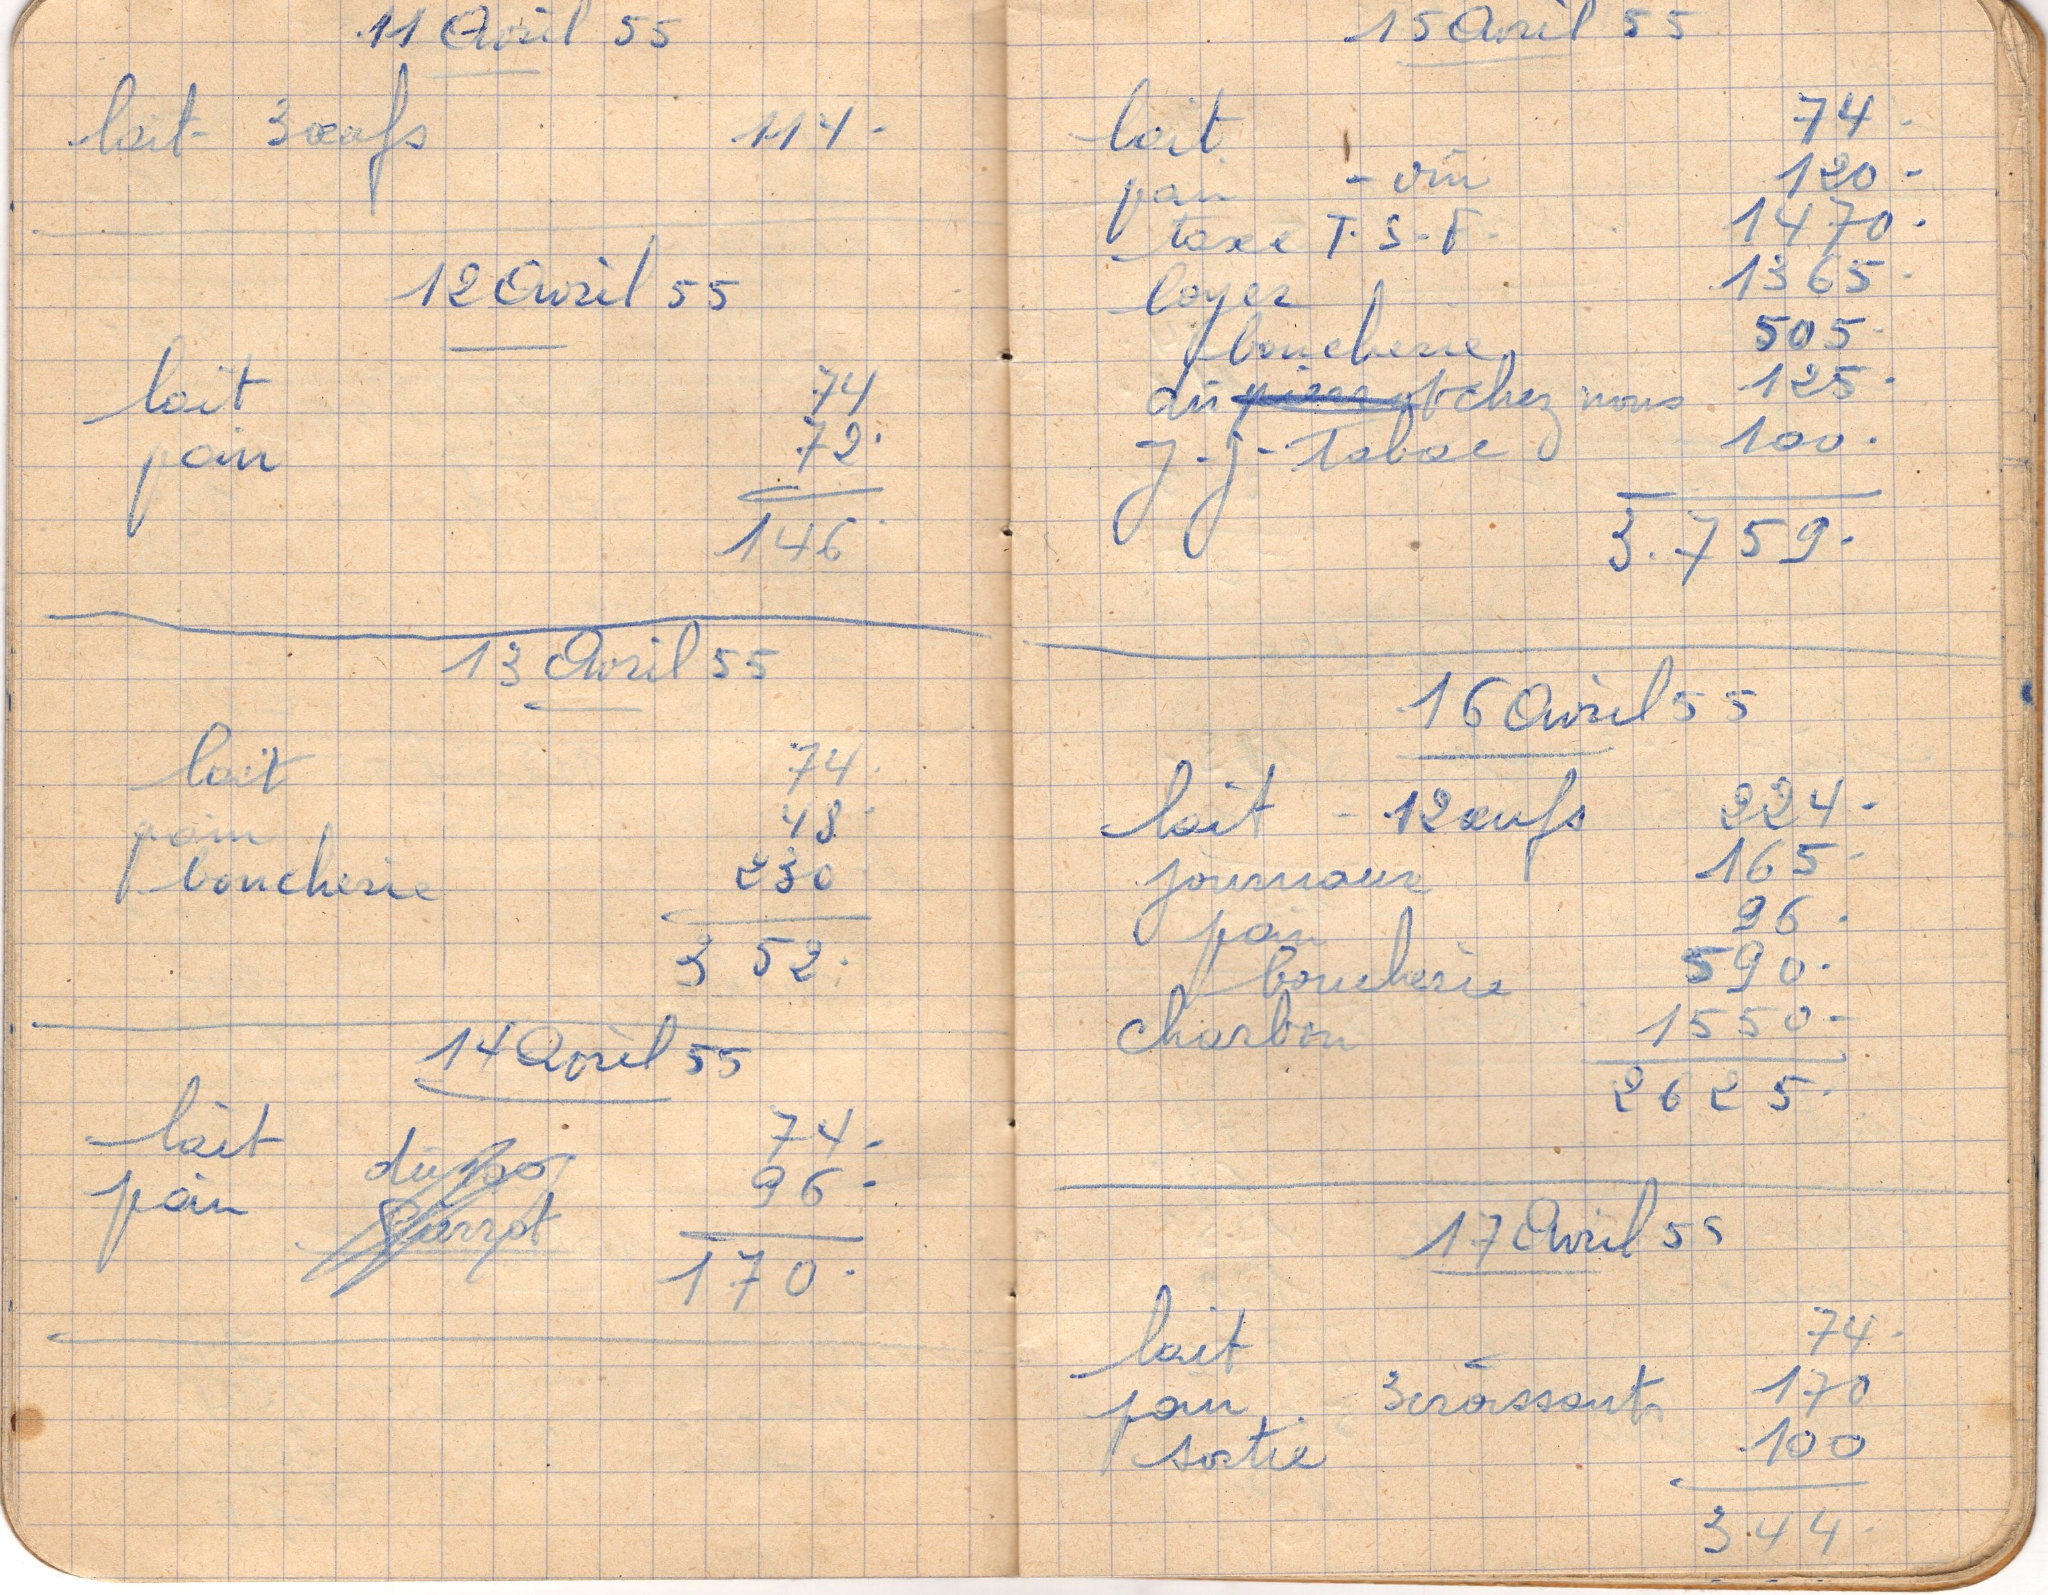 11 Avril 55
lait 3 œufs 114.
12 Avril 55
lait 74
pain 72.
146.
13 Avril 55
lait 74.
pain 48.
boucherie 230
352.
14 Avril 55
lait dû 74.
pain Pierrot 96.
170.
15 Avril 55
lait 74.
pain - vin 120.
taxe T.S.F. 1470.
loyer 1365.
boucherie 505.
dû chez nous 125.
J.J. Tabac 100.
3.759.
16 Avril 55
lait - 12 œufs 224.
journaux 165.
pain 96.
boucherie 590.
charbon 1550-
2625.
17 Avril 55
lait 74.
pain 3 croissants 170
sortie 100
344.